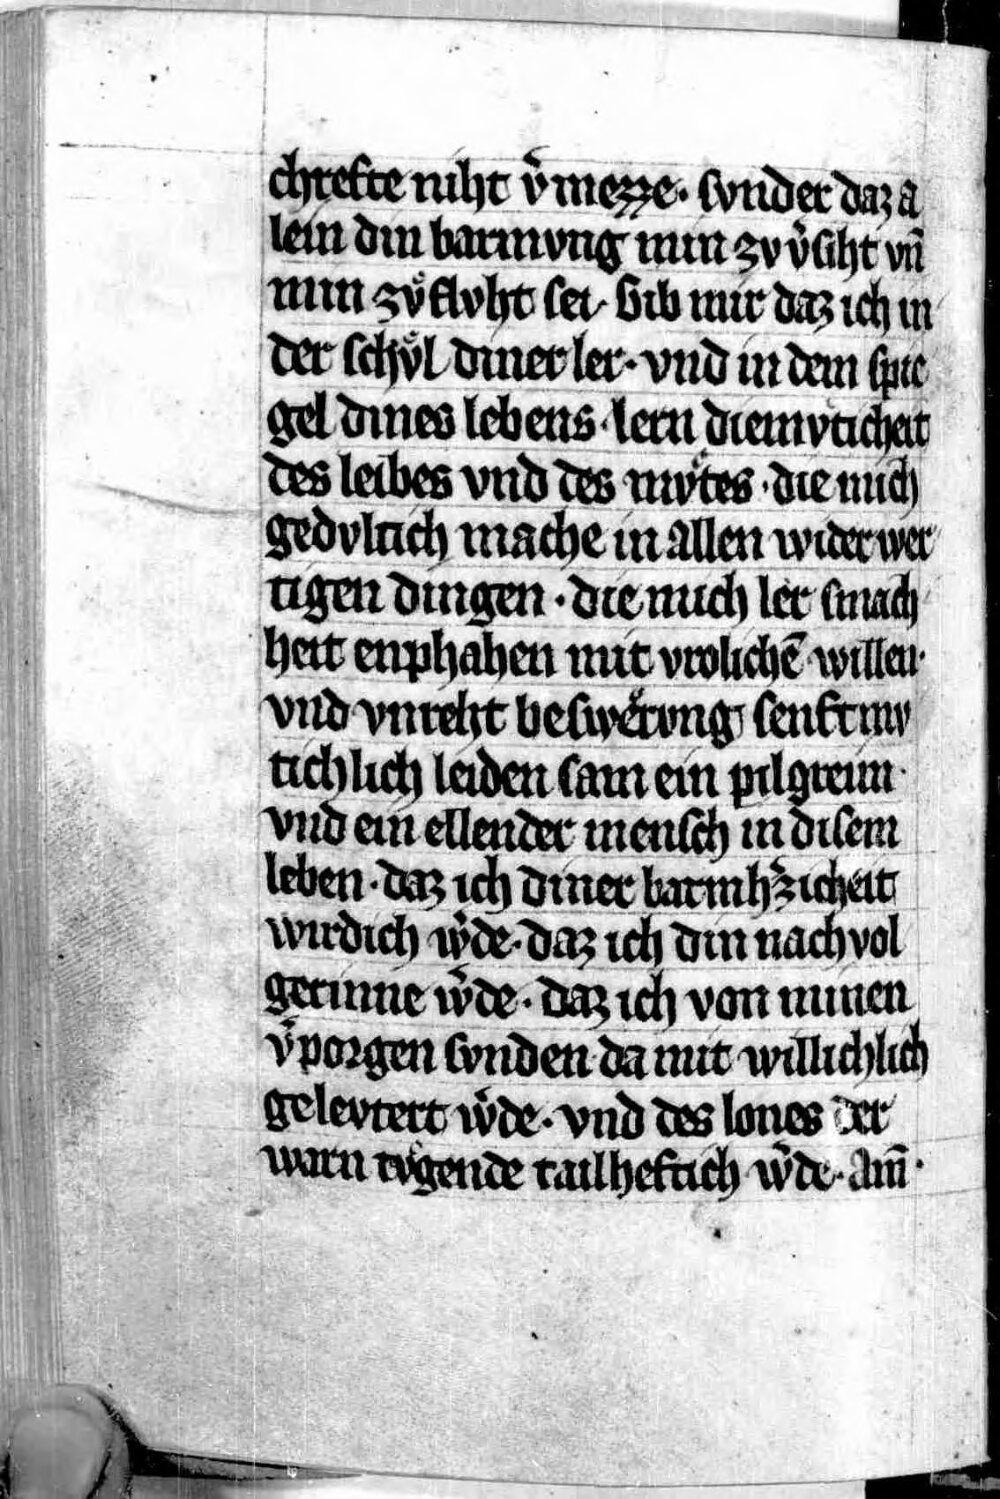 chrefte niht v̾mezze· svnder daz a
lein din barmvng min zv v̾siht vn̄
min zvͦflvht sei· Gib mir daz ich in
der schvͦl diner ler· vnd in dem spie
gel dines lebens· lern diemvticheit
des leibes vnd des mvͦtes· die mich
gedvltich mache in allen wider wer
tigen dingen· die mich ler smach
heit enphahen mit vrolichē willen·
vnd vnreht beswerͦvng senftmv
tichlich leiden sam ein pilgreim·
vnd ein ellender mensch in disem
leben· daz ich diner barmh̾zicheit
wirdich w̾de· daz ich din nachvol
gerinne w̾de· daz ich von minen
v̾porgen svnden da mit willichlich
gelevtert w̾de· vnd des lones der
warn tvͦgende tailheftich w̾de· Am̄·